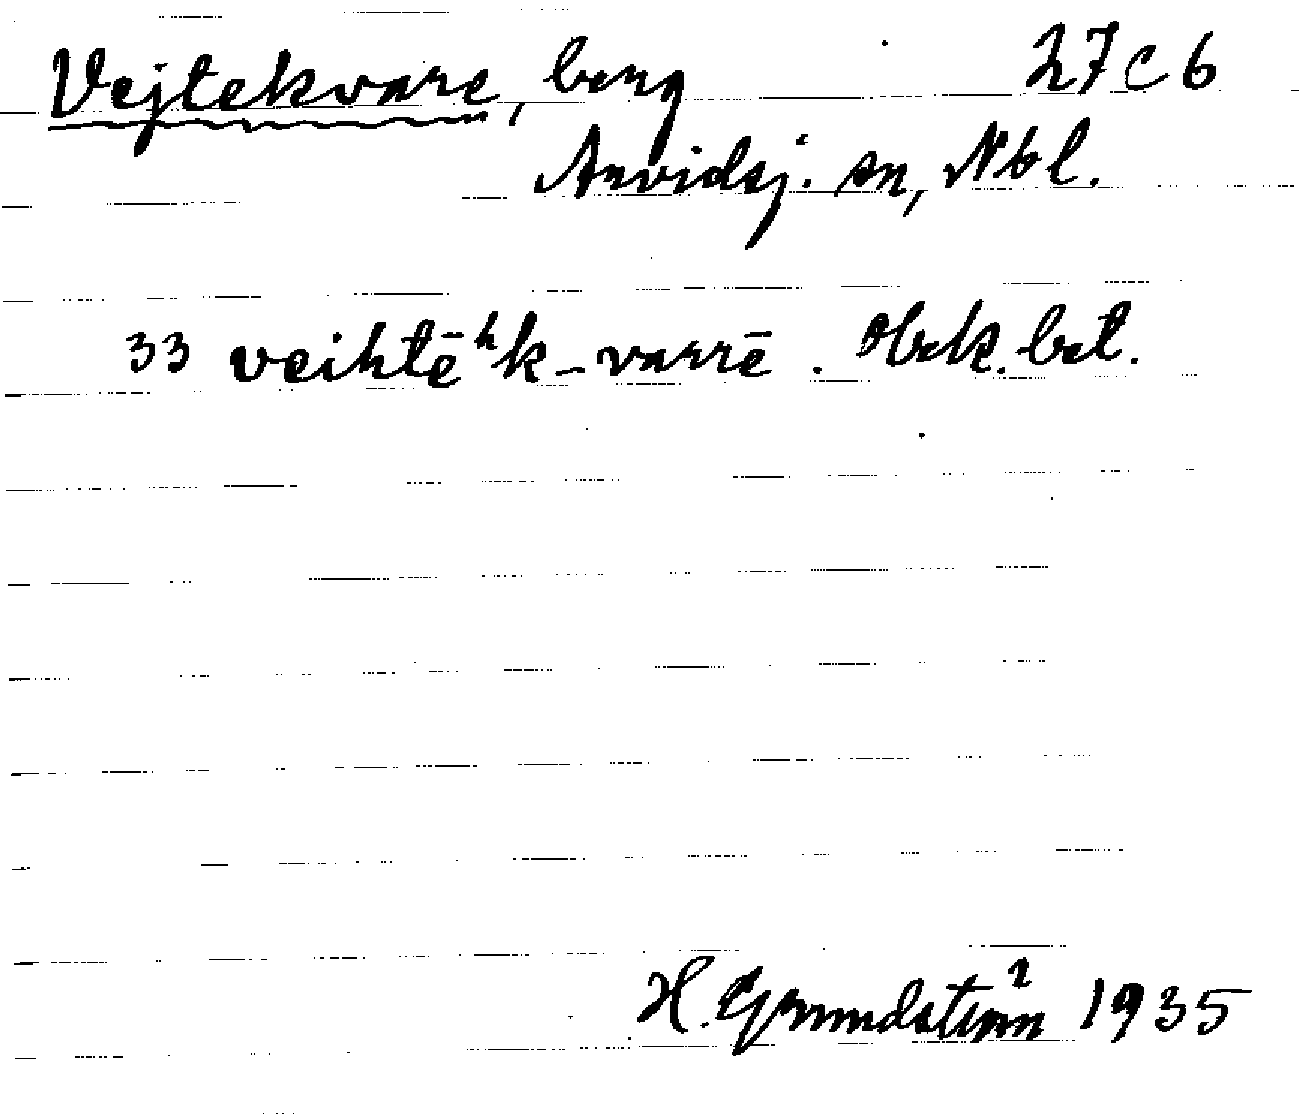 Vejtekvare, berg 27 C 6
Arvidsj. sn, Nbl.
33 veihtēʰk-varrē. Obek. bet.
H. Grundström 1935